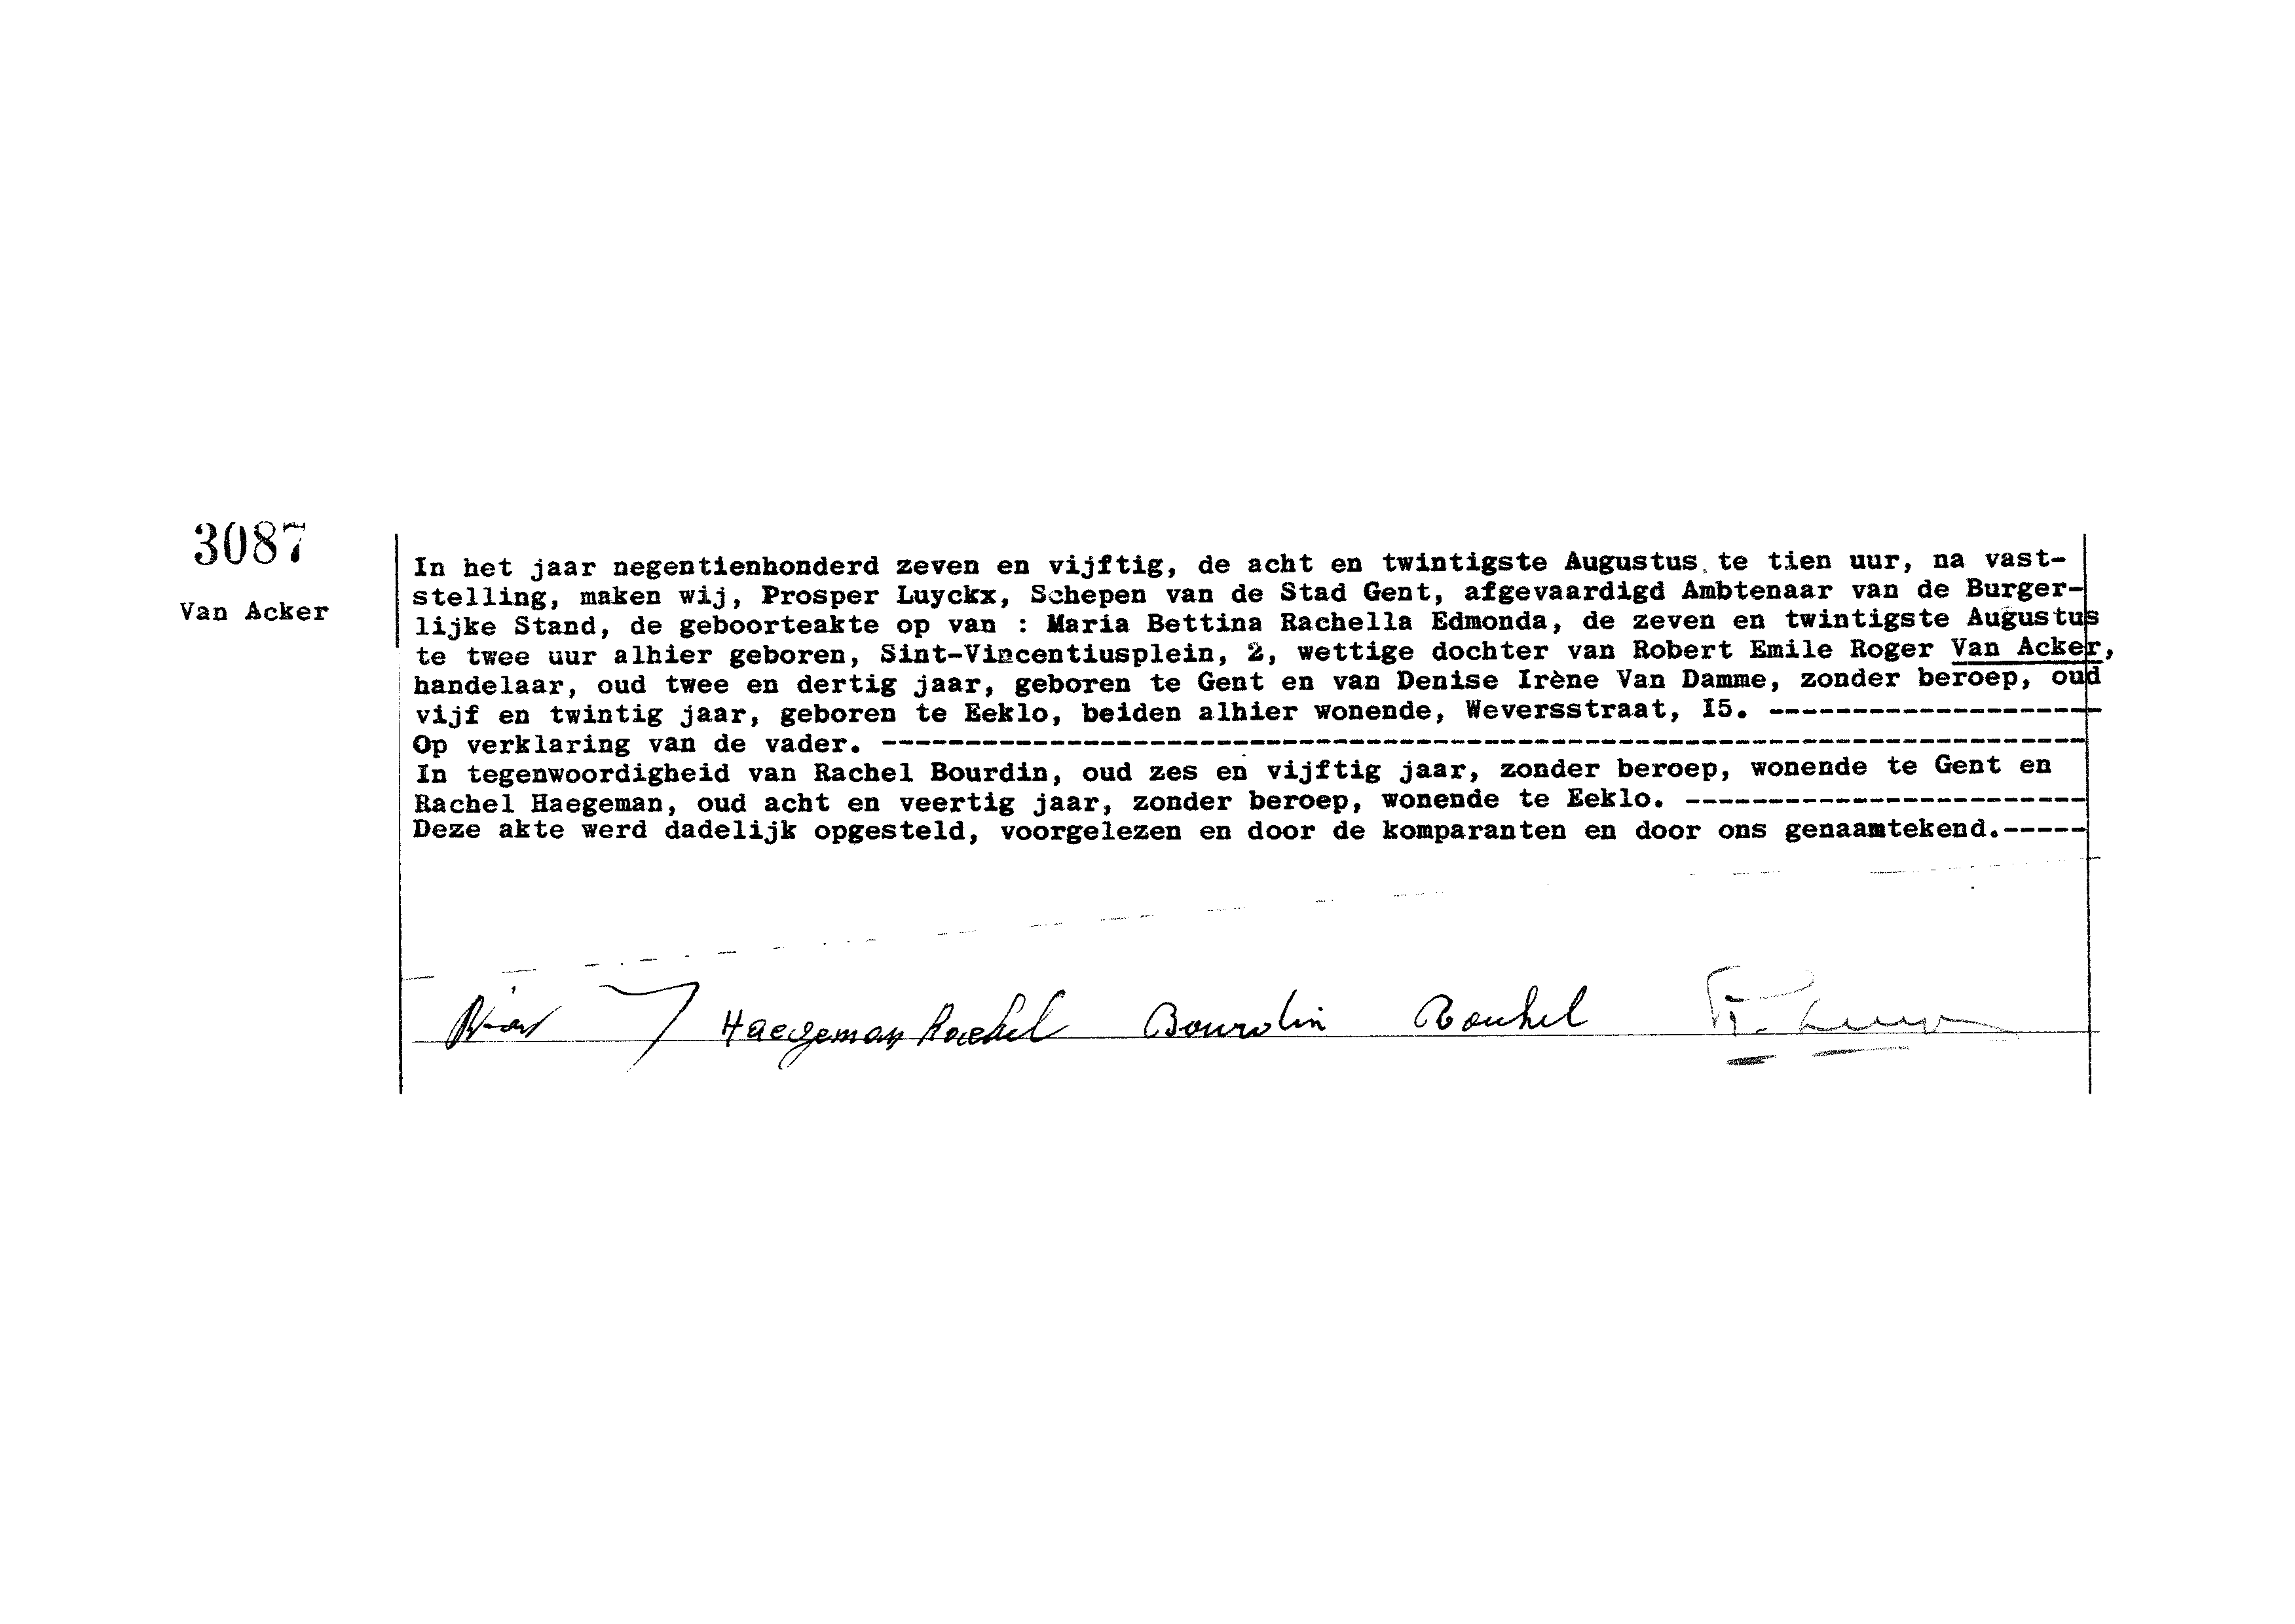 3087
Van Acker
In het jaar negentienhonderd zeven en vijftig, de acht en twintigste Augustus te tien uur, na vast-
stelling, maken wij, Prosper Luyckx, Schepen van de Stad Gent, afgevaardigd Ambtenaar van de Burger-
lijke Stand, de geboorteakte op van : Maria Bettina Rachella Edmonda, de zeven en twintigste Augustus
te twee uur alhier geboren, Sint-Vincentiusplein, 2, wettige dochter van Robert Emile Roger Van Acker,
handelaar, oud twee en dertig jaar, geboren te Gent en van Denise Irène Van Damme, zonder beroep, oud
vijf en twintig jaar, geboren te Eeklo, beiden alhier wonende, Weversstraat, I5. --------------------
Op verklaring van de vader. -------------------------------------------------------------------------
In tegenwoordigheid van Rachel Bourdin, oud zes en vijftig jaar, zonder beroep, wonende te Gent en
Rachel Haegeman, oud acht en veertig jaar, zonder beroep, wonende te Eeklo. ------------------------
Deze akte werd dadelijk opgesteld, voorgelezen en door de komparanten en door ons genaamtekend.-----
Haegeman Rachel Bourdin Rachel